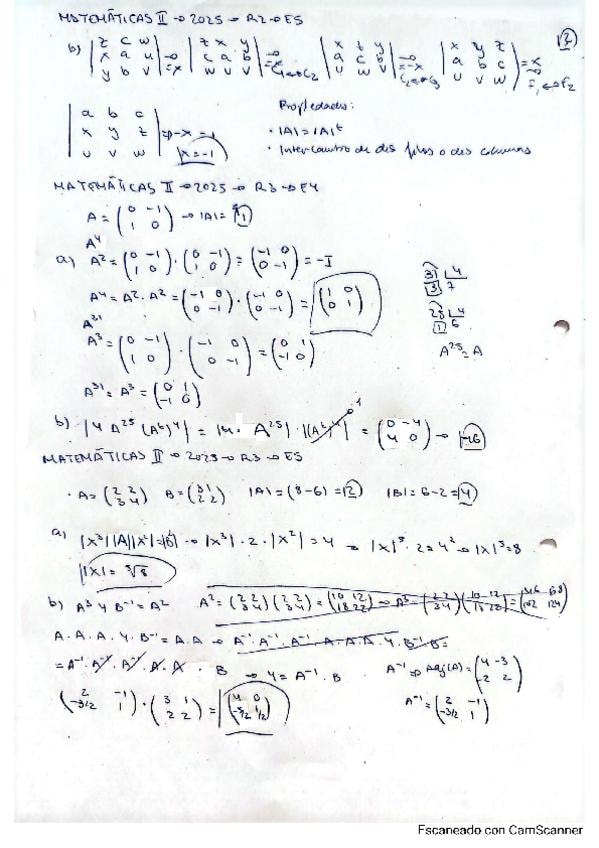 MATEMÁTICAS II → 2025 → R2 → E5
b) | z c w ; x a u ; y b v | → | z x y ; c a b ; w u v | → C1↔C2 | x z y ; a c b ; u w v | → = -x C2↔C3 | x y z ; a b c ; u v w | = x → F1↔F2
| a b c ; x y z ; u v w | => -x = 1
x = -1
Propiedades:
· |A| = |A|t
· Intercambio de dos filas o dos columnas
MATEMÁTICAS II → 2025 → R3 → E4
A = (0 -1 ; 1 0) → |A| = 1
A4
a) A2 = (0 -1 ; 1 0) · (0 -1 ; 1 0) = (-1 0 ; 0 -1) = -I
A4 = A2 · A2 = (-1 0 ; 0 -1) · (-1 0 ; 0 -1) = (1 0 ; 0 1)
31 4
3 7
A31
A3 = (0 -1 ; 1 0) · (-1 0 ; 0 -1) = (0 1 ; -1 0)
25 4
1 6
A25 = A
A31 = A3 = (0 1 ; -1 0)
b) |4 A25 (At)4| = |4 · A25| · |(At)4| 1 = (0 -4 ; 4 0) →
MATEMÁTICAS II → 2025 → R3 → E5
· A = (2 2 ; 3 4) B = (3 1 ; 2 2) |A| = (8-6) = 2 |B| = 6-2 = 4
a) |x3||A||x2| = |B| → |x3| · 2 · |x2| = 4 → |x|3 · 2 = 4 → |x|5 = 8
|x| = 5√8
b) A3 Y B-1 = A2 A2 = (2 2 ; 3 4)(2 2 ; 3 4) = (10 12 ; 18 22) → A3
A · A · A · Y · B-1 = A · A → A-1 · A-1 · A-1 · A · A · A · Y · B-1 · B =
= A-1 · A-1 · A-1 · A · A · B → Y = A-1 · B A-1 → Adj(A) = (4 -3 ; -2 2)
(2 -1 ; -3/2 1) · (3 1 ; 2 2) = (4 0 ; -5/2 1/2) A-1 = (2 -1 ; -3/2 1)
Escaneado con CamScanner